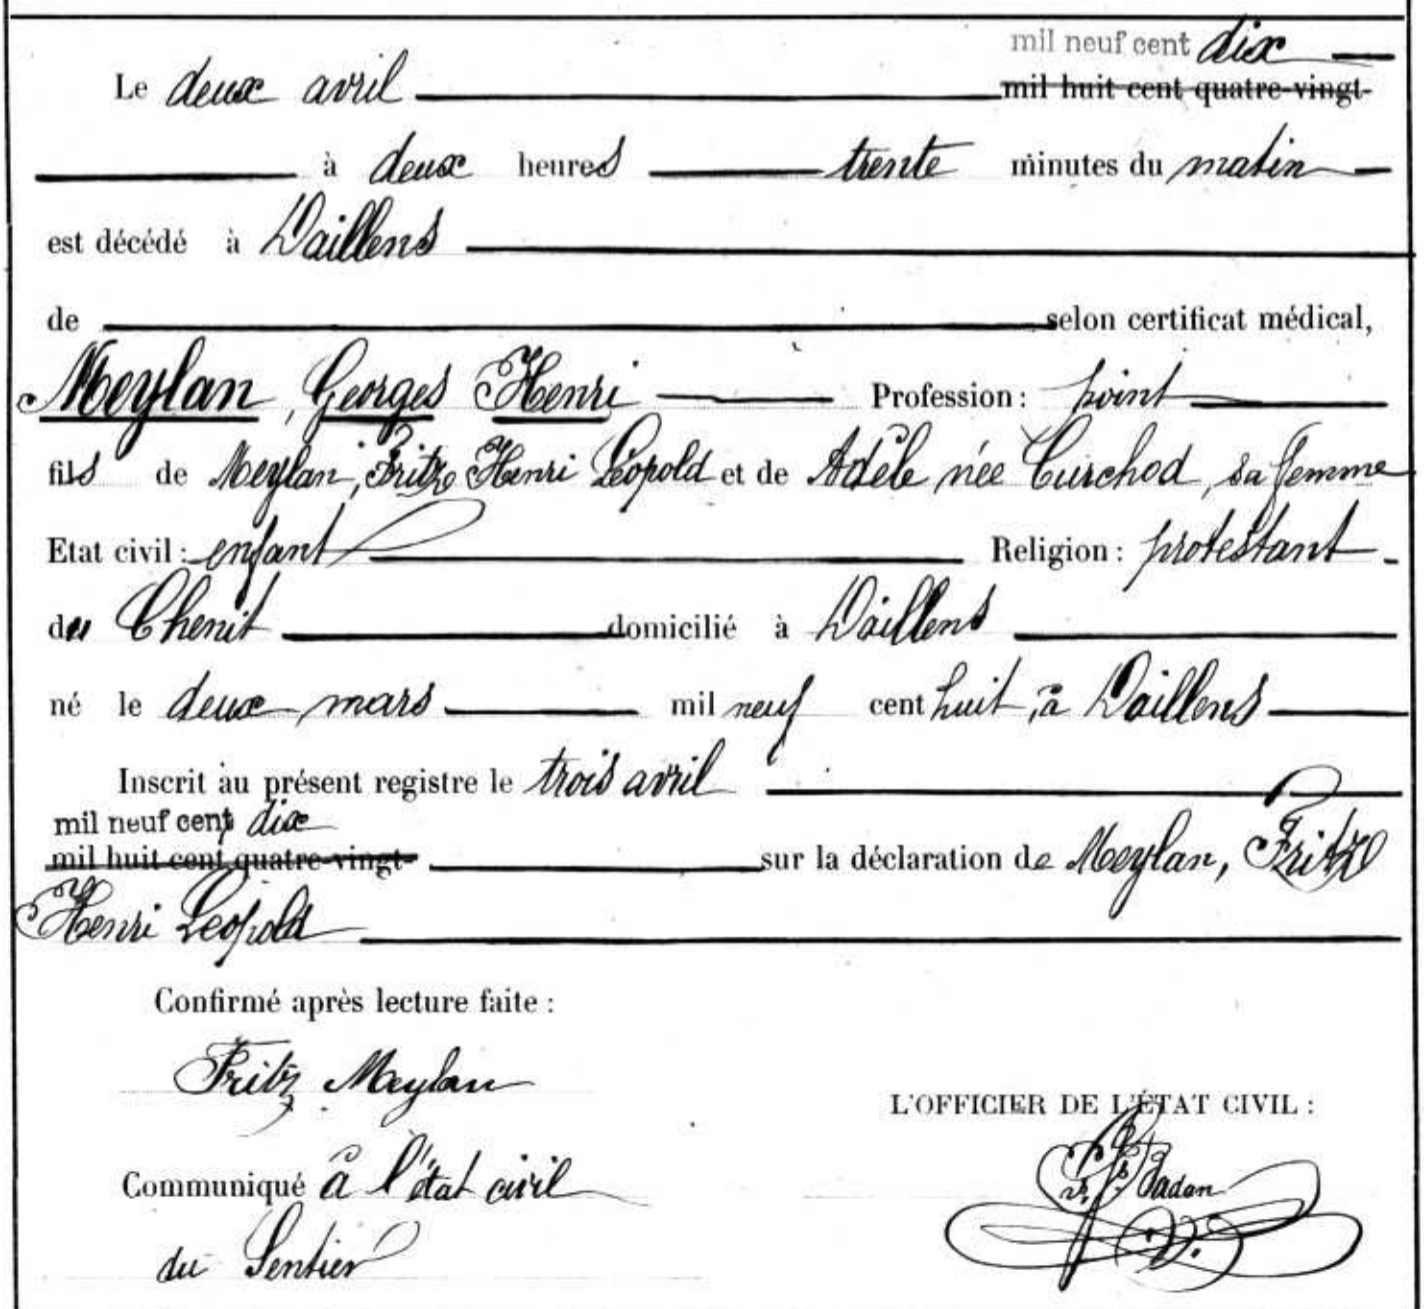 mil neuf cent dix
Le deux avril mil huit cent quatre-vingt-
à deux heures trente minutes du matin
est décédé à Daillens
de selon certificat médical,
Meylan, Georges Henri Profession: point
fils de Meylan, Fritz Henri Léopold et de Adèle née Curchod, sa femme
Etat civil: enfant Religion: protestant
du Chenit domicilié à Daillens
né le deux mars mil neuf cent huit, à Daillens
Inscrit au présent registre le trois avril
mil neuf cent dix
mil huit cent quatre-vingt- sur la déclaration de Meylan, Fritz
Henri Léopold
Confirmé après lecture faite:
Fritz Meylan
L'OFFICIER DE L'ÉTAT CIVIL:
Communiqué à l'état civil
du Sentier
Badan